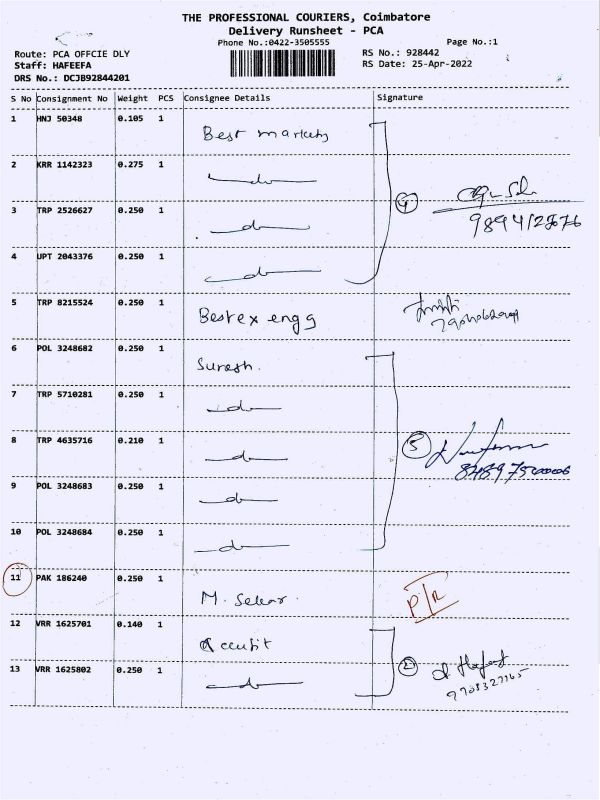 THE PROFESSIONAL COURIERS, Coimbatore
Delivery Runsheet - PCA
Phone No.:0422-3505555
Page No.:1
Route: PCA OFFCIE DLY
RS No.: 928442
Staff: HAFEEFA
RS Date: 25-Apr-2022
DRS No.: DCJB92844201
S No Consignment No Weight PCS Consignee Details Signature
1 HNJ 50348 0.105 1 Best
2 KRR 1142323 0.275 1 do
3 TRP 2526627 0.250 1 do
4 UPT 2043376 0.250 1 do
4
5 TRP 8215524 0.250 1 Bestex engg
6 POL 3248682 0.250 1 Suresh.
7 TRP 5710281 0.250 1 do
8 TRP 4635716 0.210 1 do
5
9 POL 3248683 0.250 1 do
10 POL 3248684 0.250 1 do
11 PAK 186240 0.250 1 M. Sekar. P/R
12 VRR 1625701 0.140 1
13 VRR 1625802 0.250 1 do
2